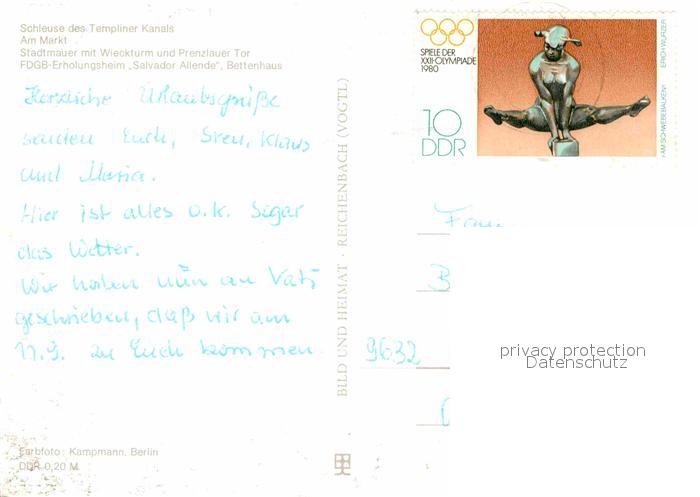 Schleuse des Templiner Kanals
Am Markt
Stadtmauer mit Wieckturm und Prenzlauer Tor
FDGB-Erholungsheim „Salvador Allende", Bettenhaus
Herzliche Urlaubsgrüße
senden Euch, Sven, Klaus
und Maria.
Hier ist alles o.k. Sogar
das Wetter.
Wir haben nun an Vati
geschrieben, daß wir am
11.9. zu Euch kommen.
Farbfoto: Kampmann, Berlin
DDR 0,20 M
BILD UND HEIMAT · REICHENBACH (VOGTL)
SPIELE DER
XXII·OLYMPIADE
1980
10
DDR
"AM SCHWEBEBALKEN" ERICH WURZER
Frau
B
9632
privacy protection
Datenschutz